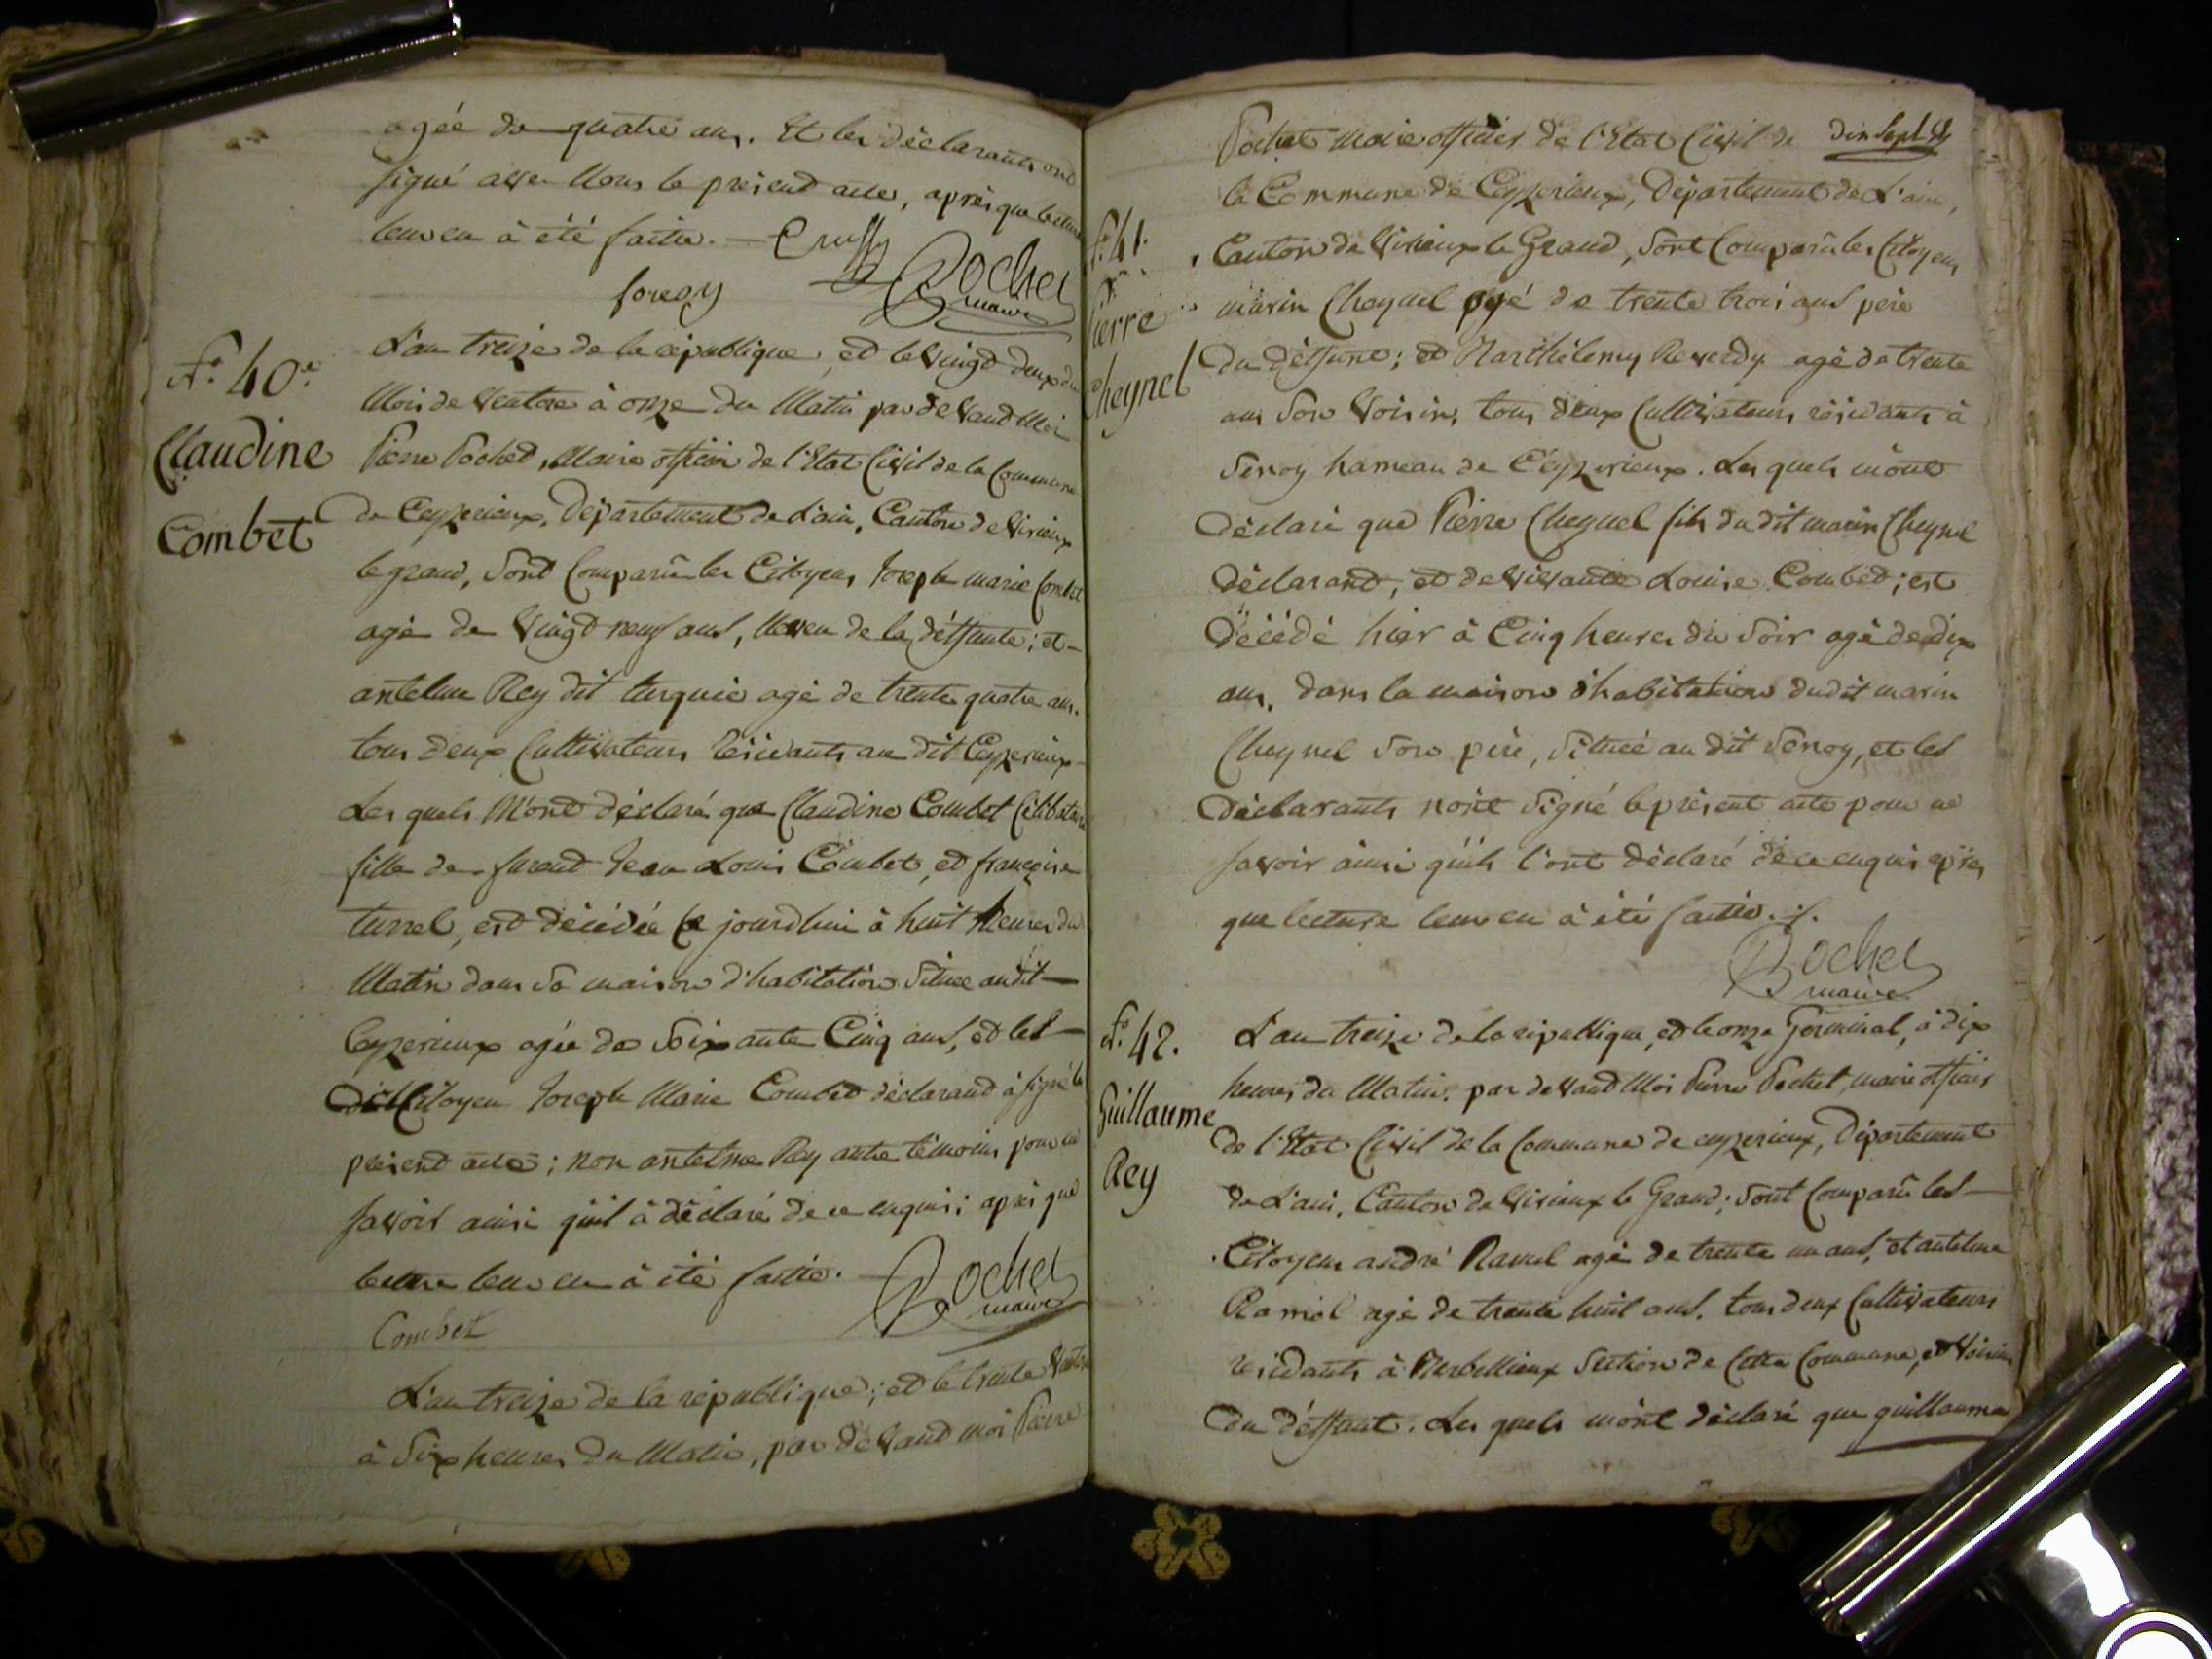 agée de quatre ans. Et les déclarants ont
signé avec Nous le présent acte, après que lecture
leur en à été faitte. — Crussy
Pochet
maire
foresy
Nº. 40e.
Claudine
Combet
L'an treize de la république, et le vingt deux du
Mois de Ventose à onze du Matin par devant Moi
Pierre Pochet, Maire officier de l'Etat Civil de la Commune
de Ceyzerieux, Département de L'ain, Canton de Virieux
le grand, sont Comparû les Citoyens Joseph marie Combet
agé de Vingt neuf ans, Neveu de la déffunte; et —
antelme Rey dit turquie agé de trente quatre ans.
tous deux Cultivateurs résidants au dit Ceyzerieux —
Les quels M'ont déclaré que Claudine Combet Célibataire
fille de furent Jean Louis Combet, et françoise
turrel, est décédée ce jourdhui à huit heures du
Matin dans sa maison d'habitation située audit —
Ceyzerieux agée de Soixante Cinq ans, et le —
dit Citoyen Joseph Marie Combet déclarand à signé le
présent acte; non antelme Rey autre témoins pour ne
savoir ainsi quil à déclaré de ce enquis; après que
lecture leur en à été faitte. —
Pochet
maire
Combet
L'an treize de la république; et le trente Ventose
à Six heures du Matin, par devant moi Pierre
dix sept
Pochet Maire officier de l'Etat Civil de
la Commune de Ceyzerieux, Département de L'ain,
Nº. 41.
Pierre
Cheynel
Canton de Virieux le Grand, sont Comparû les Citoyens
marin Cheynel agé de trente trois ans père
du déffunt; et Barthélemy Reverdy agé de trente
ans son Voisin, tous deux Cultivateurs résidants à
Senoy hameau de Ceyzerieux. Les quels m'ont
déclaré que Pierre Cheynel fils du dit marin Cheynel
déclarand, et de vivante Louise Combet; est
décédé hier à Cinq heures du Soir agé de dix
ans, dans la maison d'habitation dudit marin
Cheynel son père, située au dit Senoy, et les
déclarants n'ont signé le présent acte pour ne
savoir ainsi qu'ils l'ont déclaré de ce enquis après
que lecture leur en à été faitte. ./.
Pochet
maire
Nº. 42.
Guillaume
Rey
L'an treize de la république, et le onze Germinal, à dix
heures du Matin. par devant Moi Pierre Pochet, maire officier
de l'Etat Civil de la Commune de ceyzerieux, Département
de L'ain, Canton de Virieux le Grand; sont Comparû les —
Citoyens andré Ravul agé de trente un ans, et antelme
Ramel agé de trente huit ans. tous deux Cultivateurs
résidants à Section de Cette Commune, et Voisins
du déffunt. Les quels m'ont déclaré que guillaume